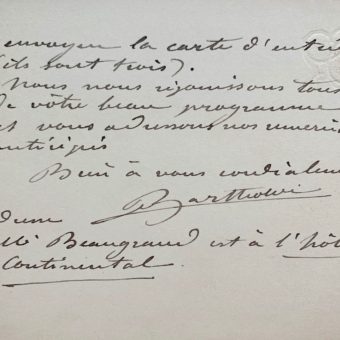 envoyer la carte d'entré
(ils sont trois).
Nous nous réjouissons tous
de vôtre beau programme
et vous adressons nos remerci
anticipés
Bien à vous cordialem
Bartholdi
Mr Beaugrand est à l'hôt
Continental.